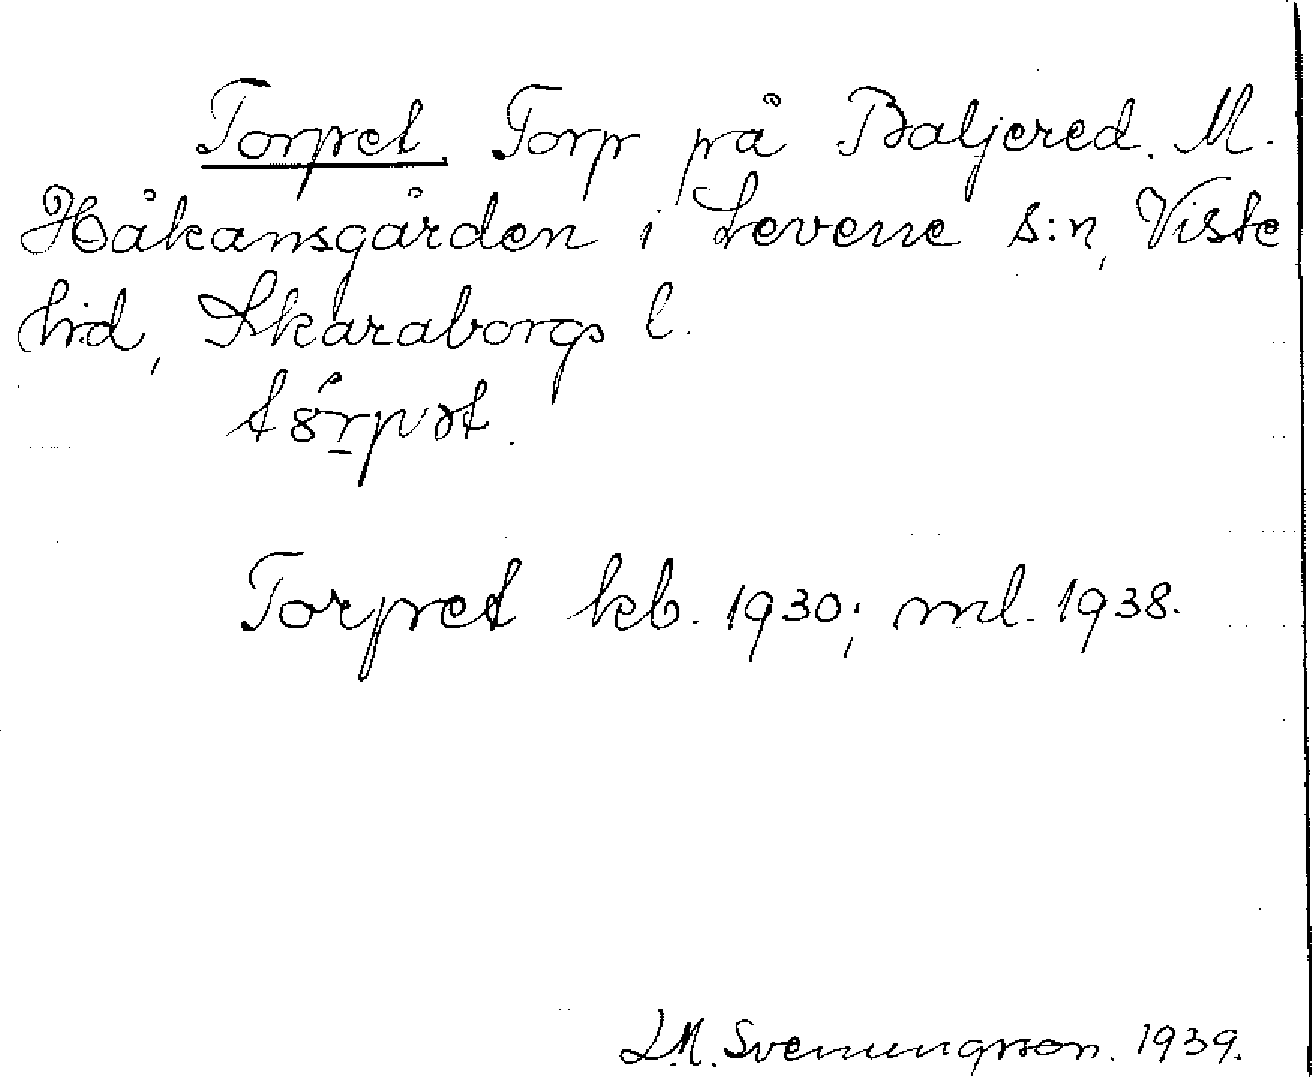 Torpet Torp på Baljered. M.
Håkansgården i Levene s:n, Viste
hd, Skaraborgs l.
tȣ́rpət.
Torpet kb. 1930; ml. 1938.
L.M. Svenungsson. 1939.